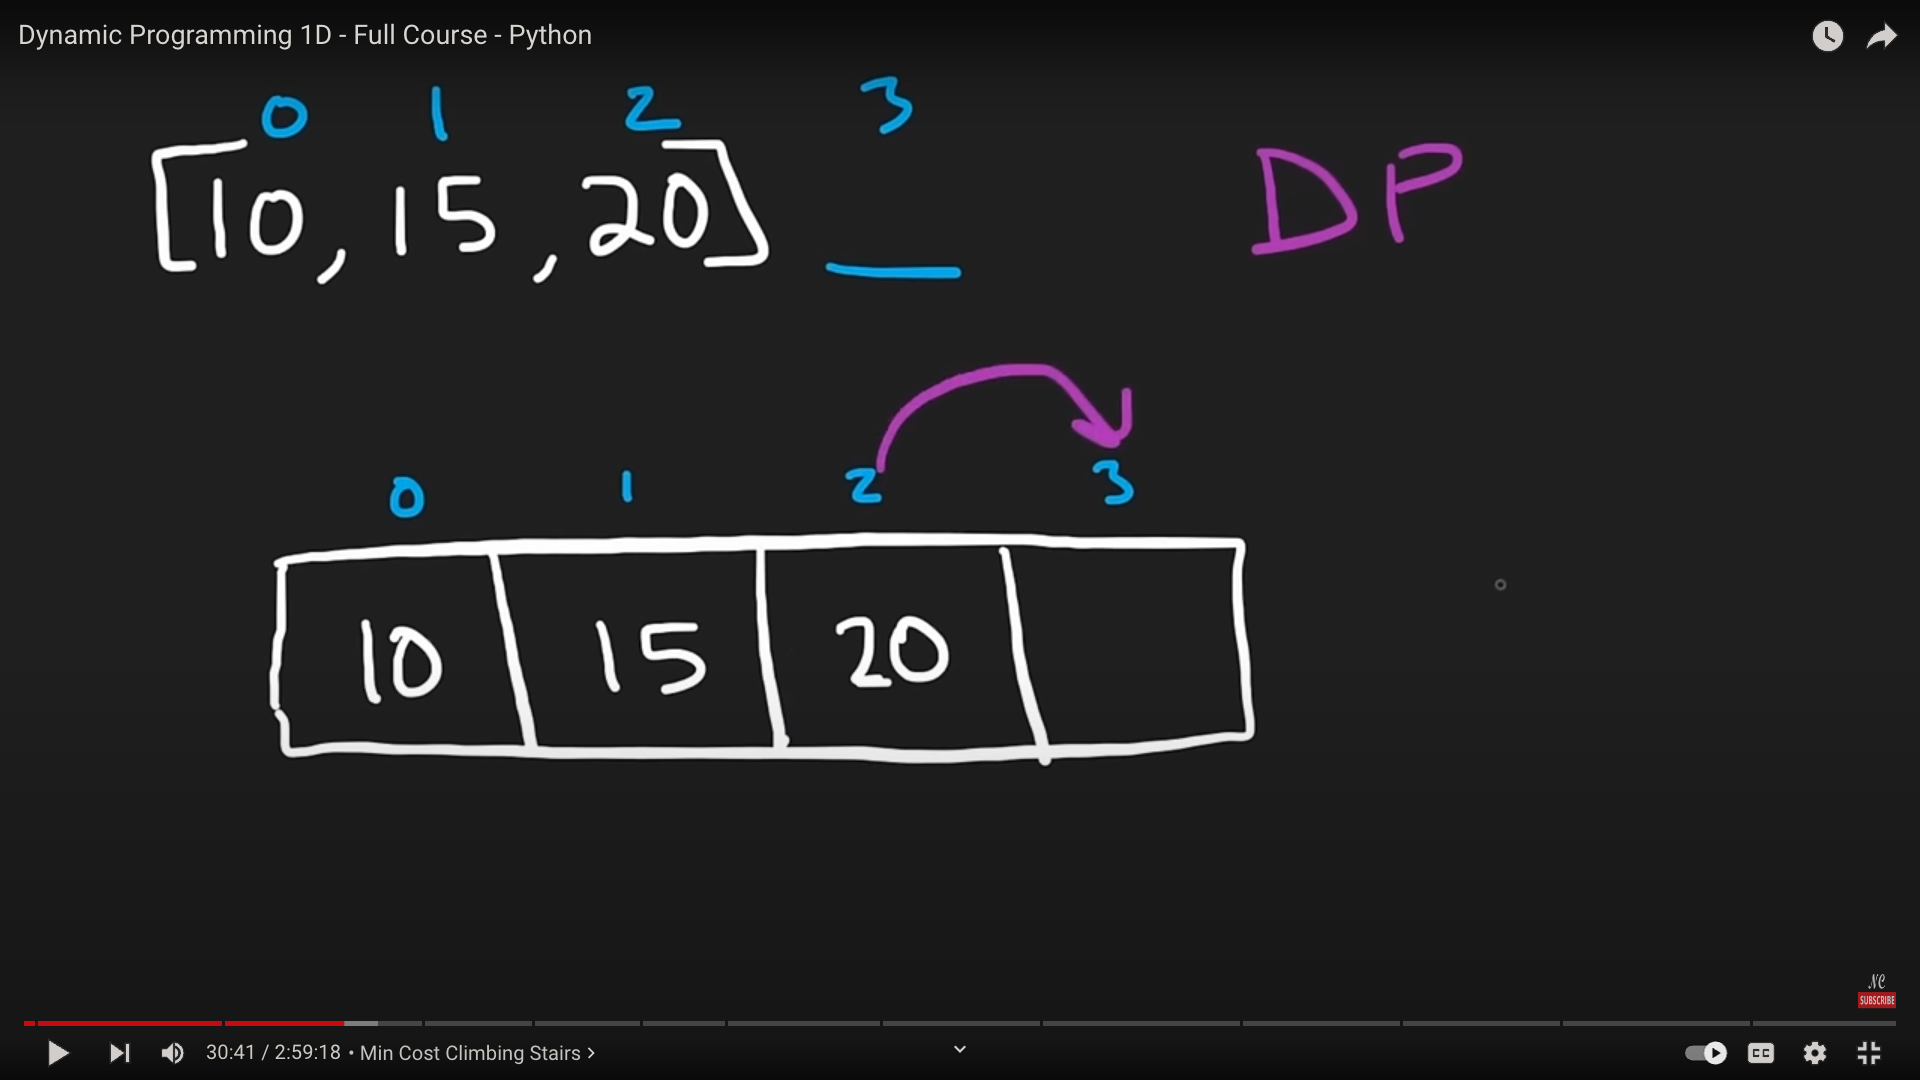 Dynamic Programming 1D - Full Course - Python
0 1 2 3
[10, 15, 20]
DP
0 1 2 3
10 15 20
NC
SUBSCRIBE
30:41 / 2:59:18 • Min Cost Climbing Stairs >
CC